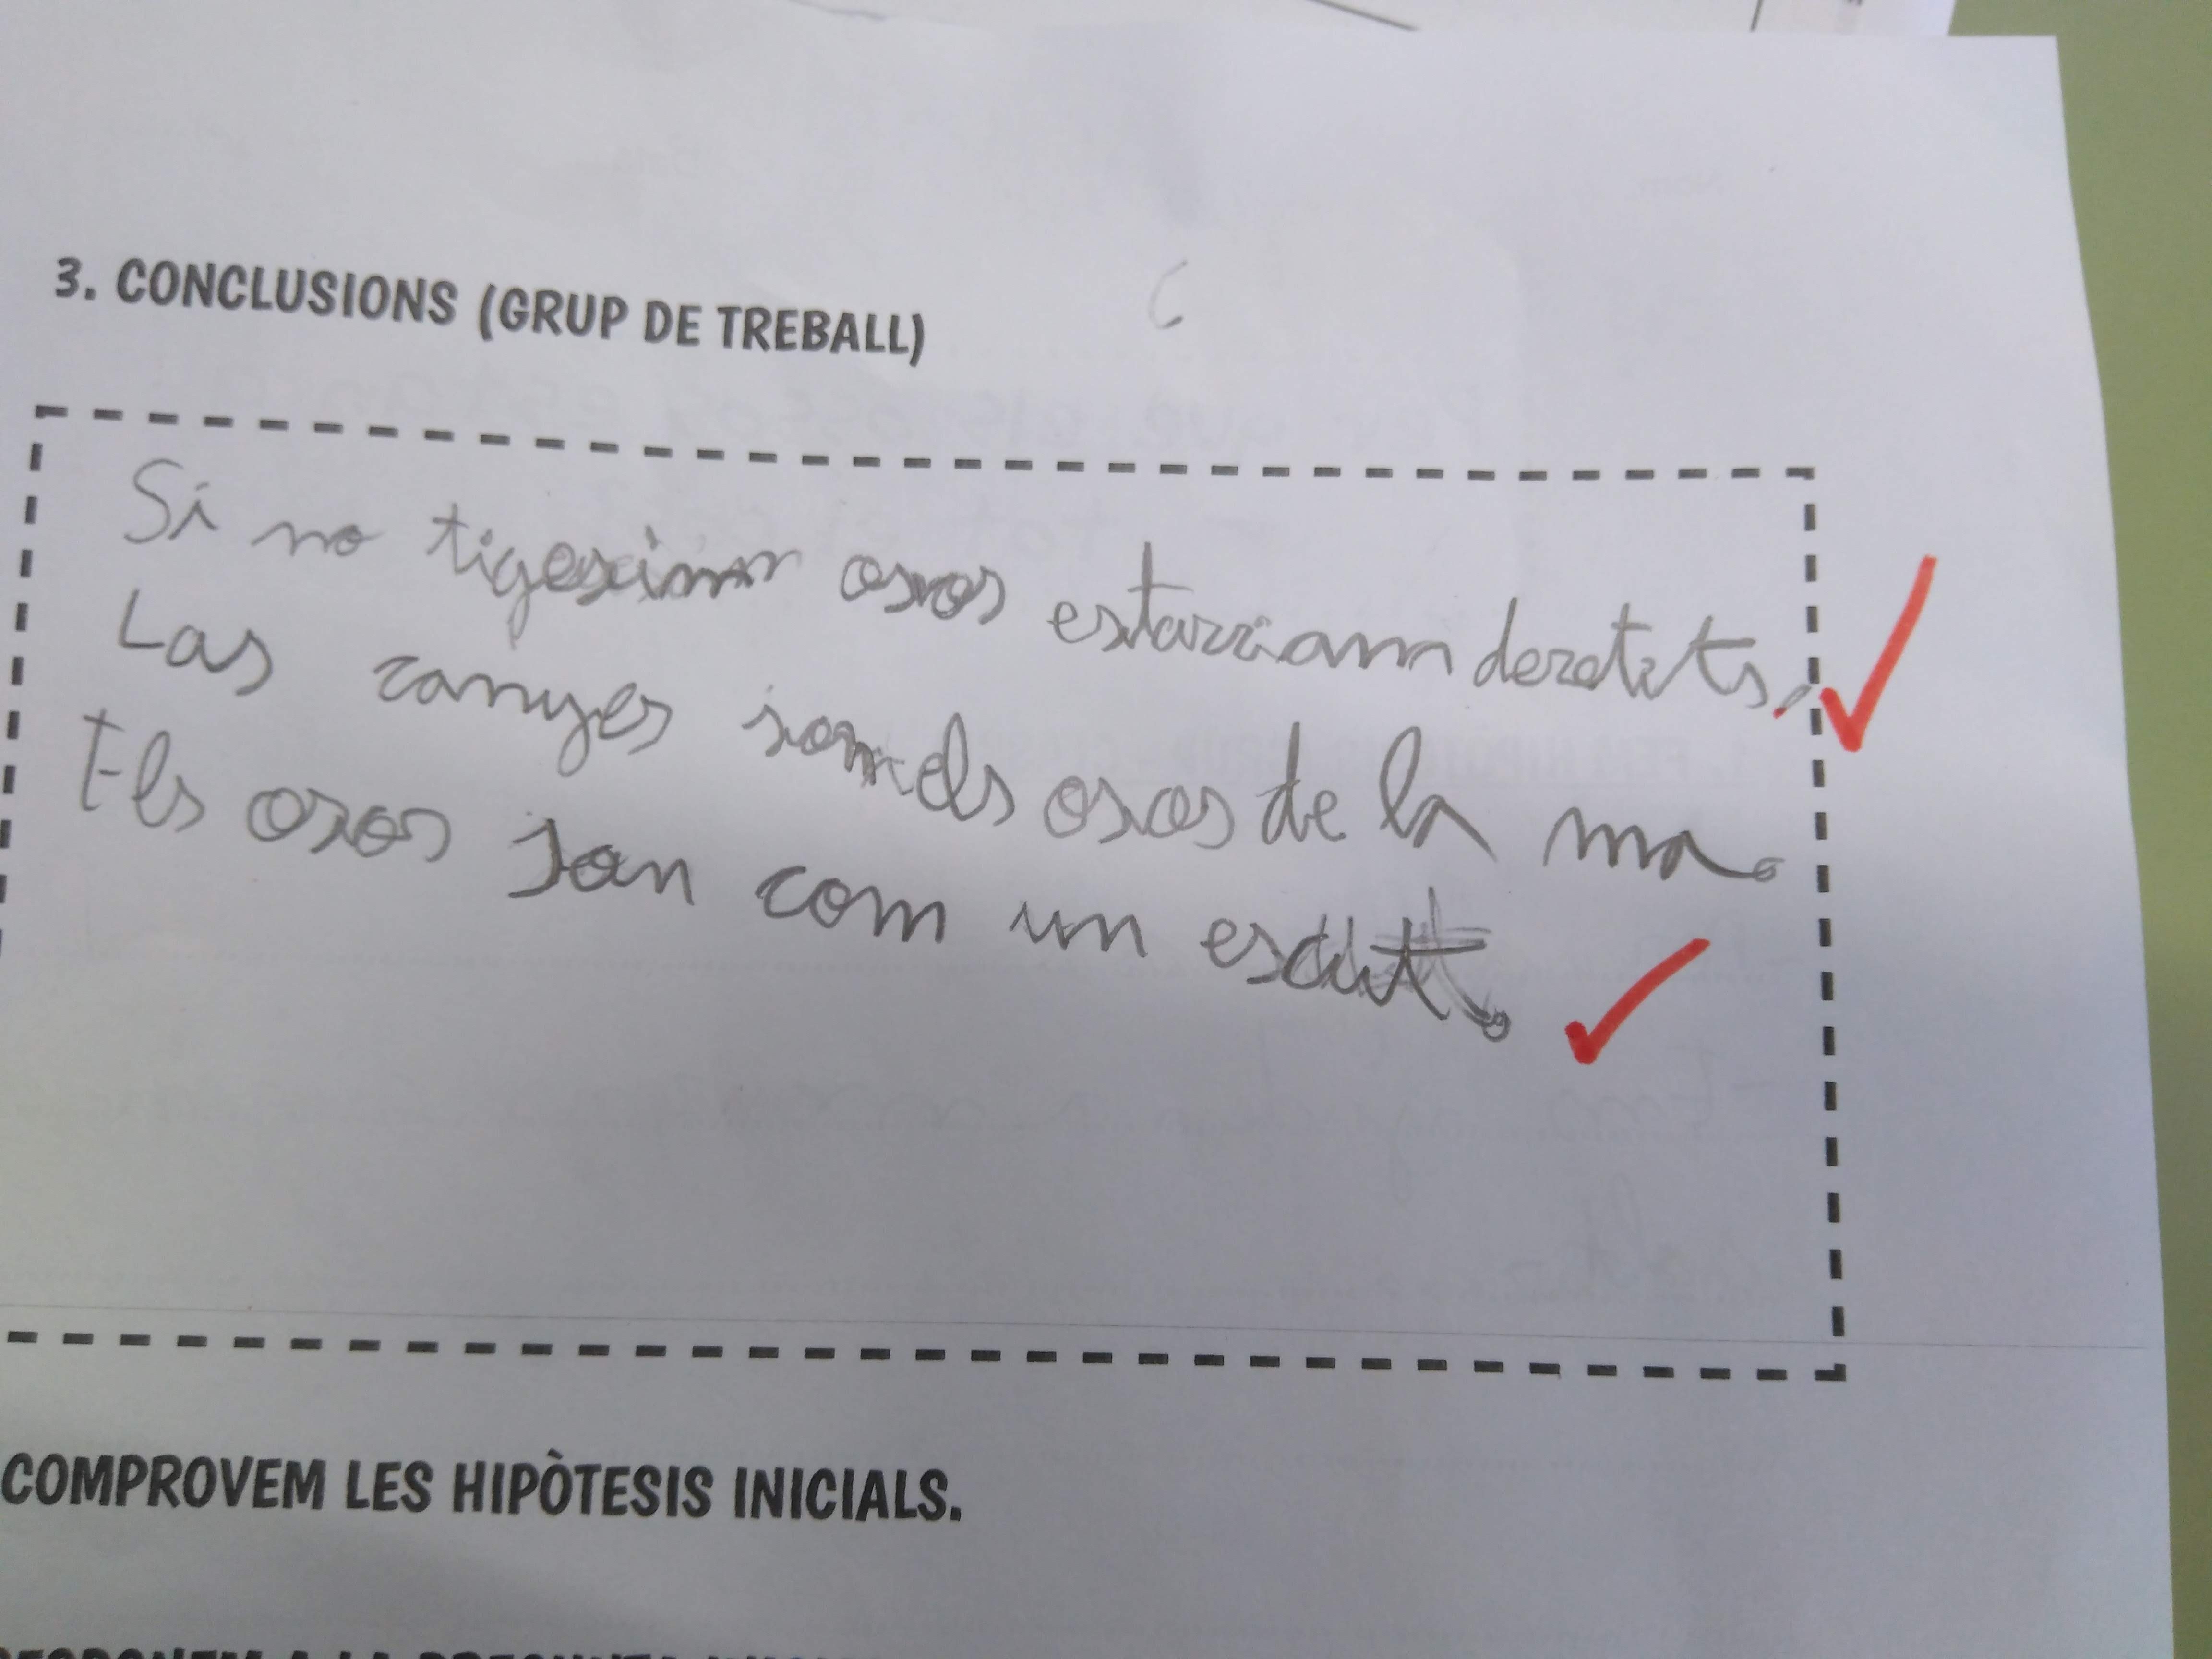 3. CONCLUSIONS (GRUP DE TREBALL)
Si no tigesim osos estariam deretits.
Las canyes som els osos de la ma.
Els osos son com un escut.
COMPROVEM LES HIPÒTESIS INICIALS.